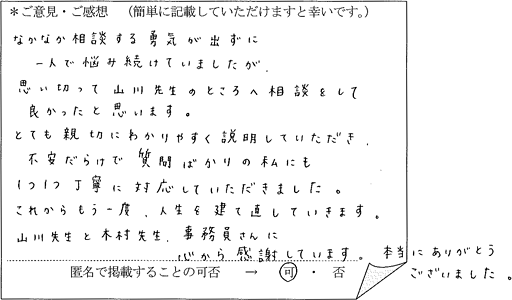 ＊ご意見・ご感想　（簡単に記載していただけますと幸いです。）
なかなか相談する勇気が出ずに
一人で悩み続けていましたが、
思い切って山川先生のところへ相談をして
良かったと思います。
とても親切にわかりやすく説明していただき、
不安だらけで質問ばかりの私にも
1つ1つ丁寧に対応していただきました。
これからもう一度、人生を建て直していきます。
山川先生と木村先生、事務員さんに
心から感謝しています。本当にありがとう
ございました。
匿名で掲載することの可否　→　可・否